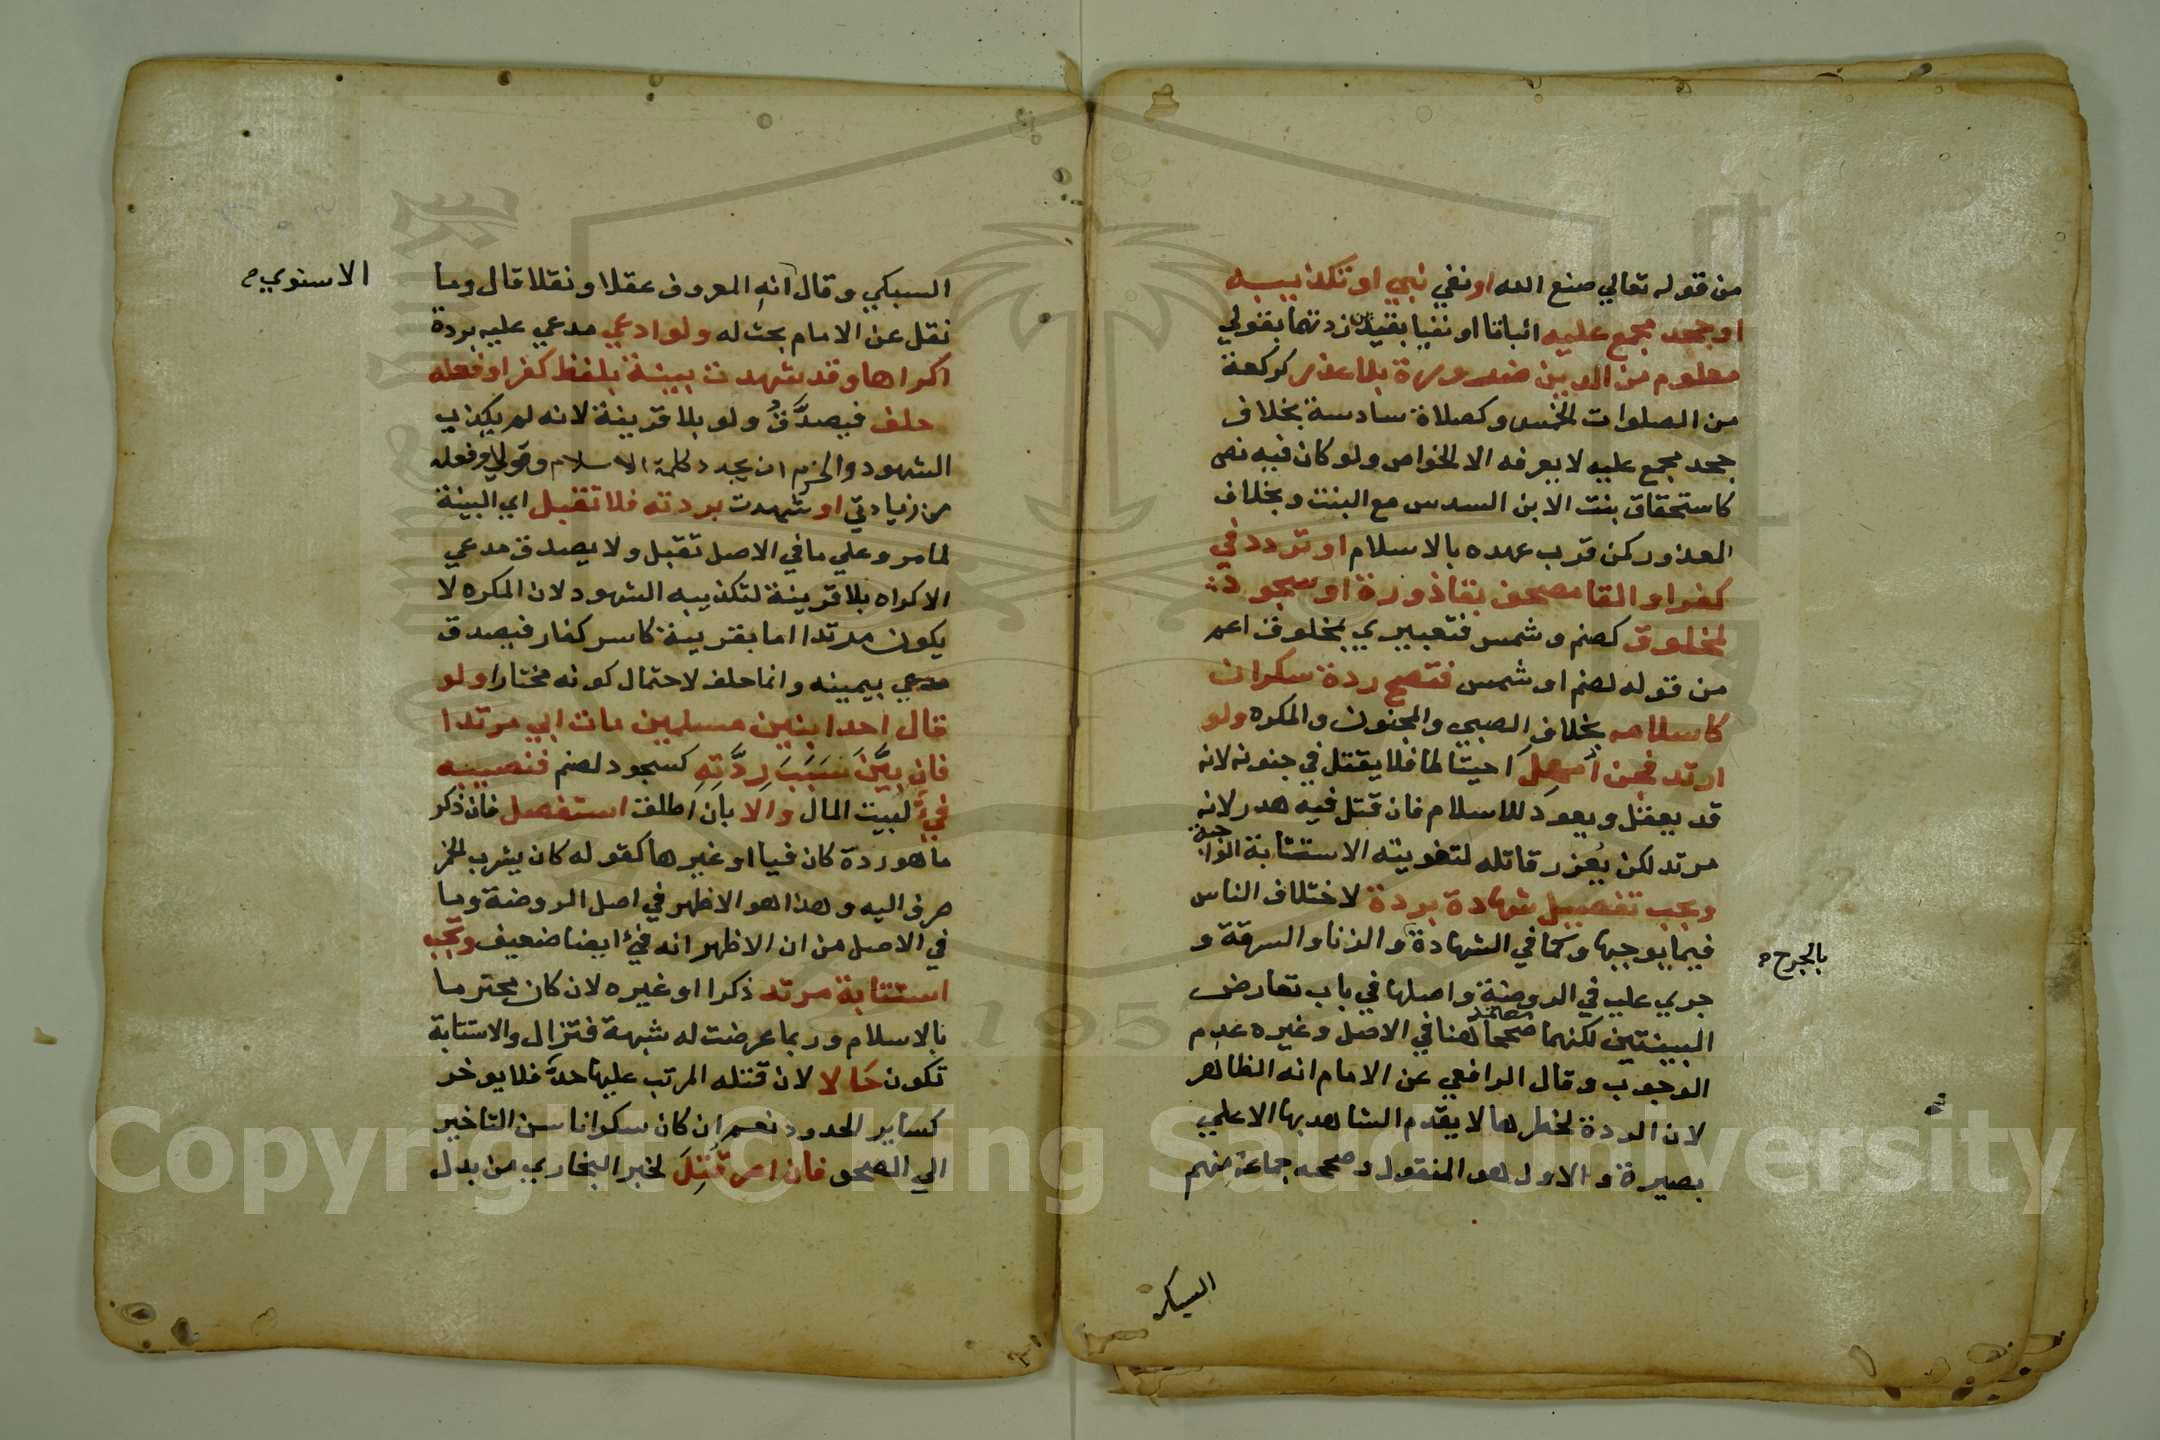 من قوله تعالي صنع الله او نفي نبي او تكذيبه
او جحد مجمع عليه اثباتا او نفيا بقيدين زدتهما بقولي
معلوم من الدين ضرورة بلا عذر كركعة
من الصلوات الخمس وكصلاة سادسة بخلاف
جحد مجمع عليه لا يعرفه الا الخواص ولو كان فيه نص
كاستحقاق بنت الابن السدس مع البنت وبخلاف
المعذور كمن قرب عهده بالاسلام او تردد في
كفر او القا مصحف بقاذورة او سجود
لمخلوق كصنم وشمس فتعبيري بمخلوق اعم
من قوله لصنم او شمس فتصح ردة سكران
كاسلامه بخلاف الصبي والمجنون والمكره ولو
ارتد فجن امهل احتياطا فلا يقتل في جنونه لانه
قد يعقل ويعود للاسلام فان قتل فيه هدر لانه
مرتد لكن يعزر قاتله لتفويته الاستتابة الواجبة
ويجب تفصيل شهادة بردة لاختلاف الناس
فيما يوجبها وكما في الشهادة والزنا والسرقة و
بالجرح
جري عليه في الروضة واصلها في باب تعارض
البينتين لكنهما صححا هنا في الاصل وغيره عدم
الوجوب وقال الرافعي عن الامام انه الظاهر
لان الردة لخطرها لا يقدم الشاهد بها الا علي
بصيرة والاول هو المنقول وصححه جماعة منهم
السبكي
السبكي وقال انه المعروف عقلا ونقلا قال وما
الاسنوي
نقل عن الامام بحث له ولو ادعي مدعي عليه بردة
اكراها وقد شهدت بينة بلفظ كفر او فعله
حلف فيصدَّقُ ولو بلا قرينة لانه لم يكذب
الشهود والحزم ان يجدد كلمة الاسلام وقولي او فعله
من زيادتي او شهدت بردته فلا تقبل اي البينة
لما مر وعلي ما في الاصل تقبل ولا يصدق مدعي
الاكراه بلا قرينة لتكذيبه الشهود لان المكره لا
يكون مرتدا اما بقرينة كاسر كفار فيصدق
مدعي بيمينه وانما حلف لاحتمال كونه مختارا ولو
قال احد ابنين مسلمين مات ابي مرتدا
فان بيَّنَ سَبَبَ رِدَّتِهِ كسجود لصنم فنصيبه
فيءٌ لبيت المال والا بان اطلق استفصل فان ذكر
ما هو ردة كان فيا او غيرها كقوله كان يشرب الخمر
صرف اليه وهذا هو الاظهر في اصل الروضة وما
في الاصل من ان الاظهر انه فيء ايضا ضعيف وتجب
استتابة مرتد ذكرا او غيره لان كان محترما
بالاسلام وربما عرضت له شبهة فتزال والاستتابة
تكون حالا لان قتله المرتب عليها حدٌّ فلا يوخر
كساير الحدود نعم ان كان سكرانا سن التاخير
الي الصحو فان اصر قُتِلَ لخبر البخاري من بدل
Copyright © King Saud University
1957